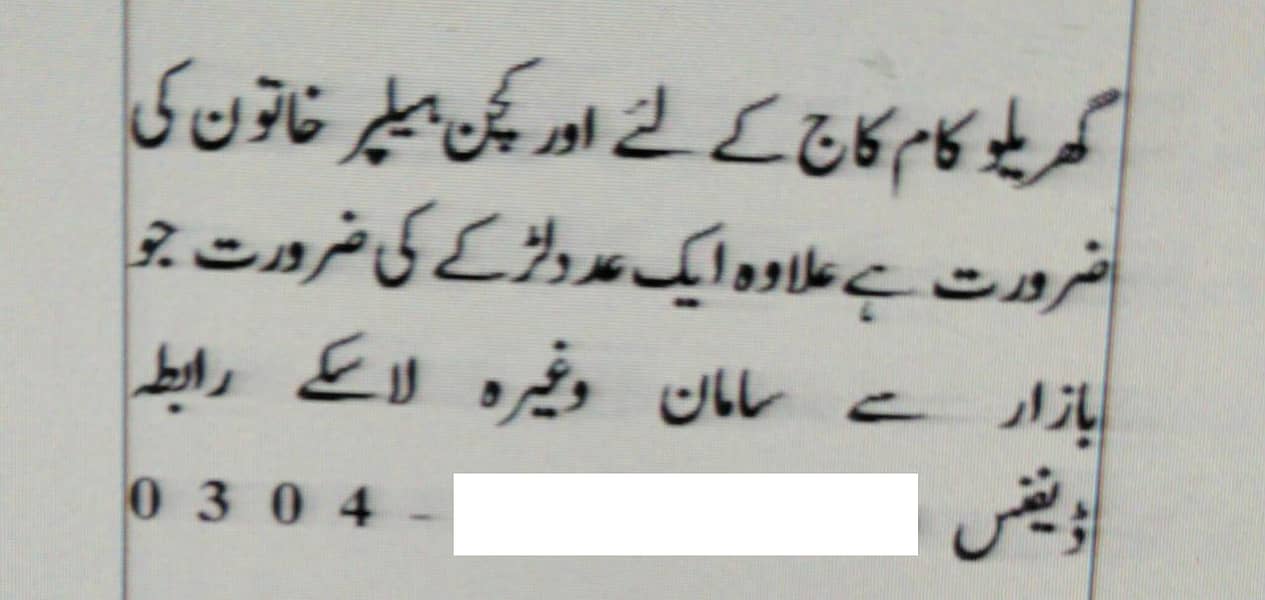 گھریلو کام کاج کے لئے اور کچن ہیلپر خاتون کی
ضرورت ہے علاوہ ایک عدد لڑکے کی ضرورت جو
بازار سے سامان وغیرہ لاسکے رابطہ
ڈیفنس 0304-